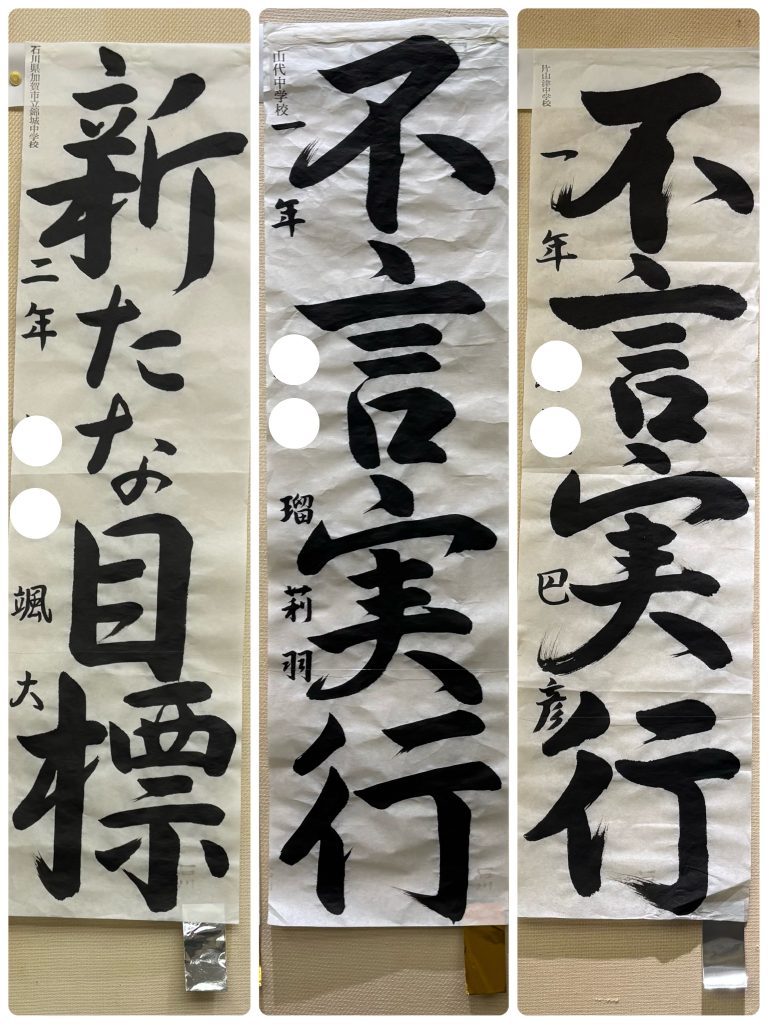 石川県加賀市立錦城中学校
新たな目標
二年
颯大
山代中学校
不言実行
一年
瑠莉羽
片山津中学校
不言実行
一年
巴彦